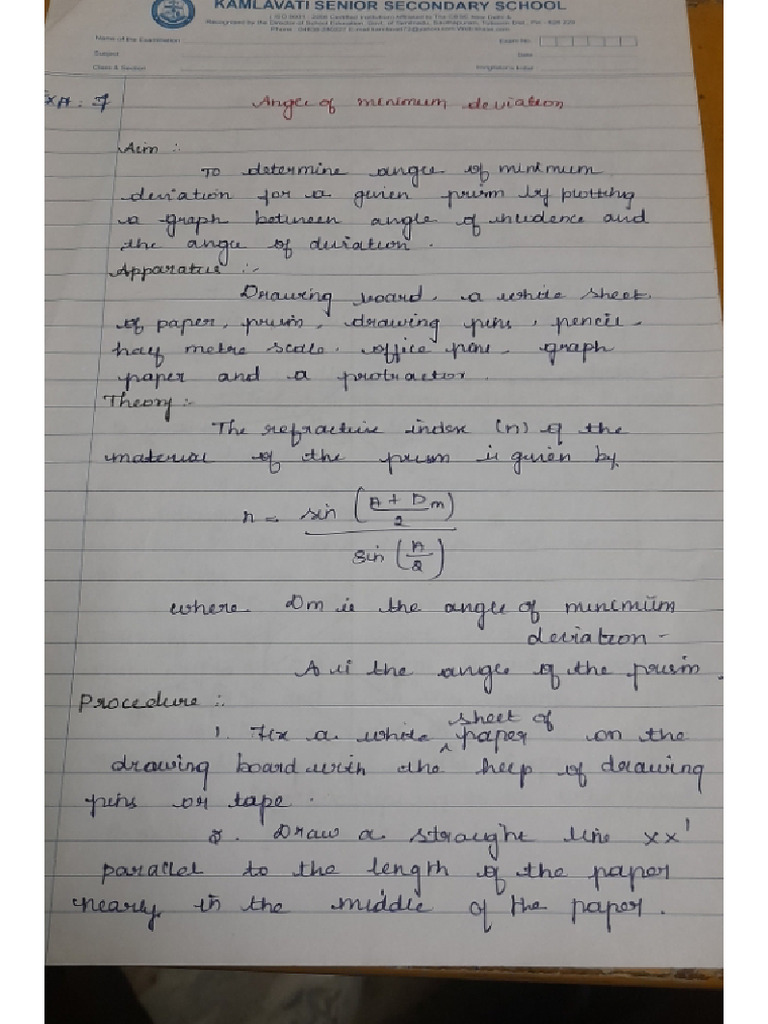 KAMLAVATI SENIOR SECONDARY SCHOOL
Name of the Examination
Exam No.
Subject
Date
Class & Section
Invigilator's Initial
Angle of minimum deviation
Aim :-
To determine angle of minimum
deviation for a given prism by plotting
a graph between angle of incidence and
the angle of deviation.
Apparatus :-
Drawing board, a white sheet
of paper, prism, drawing pins, pencil,
half metre scale, office pins, graph
paper and a protractor.
Theory :-
The refractive index (n) of the
material of the prism is given by
n = sin (A + Dm / 2)
sin (A / 2)
where Dm is the angle of minimum
deviation -
A is the angle of the prism.
Procedure :-
1. Fix a white sheet of paper on the
drawing board with the help of drawing
pins or tape.
2. Draw a straight line xx'
parallel to the length of the paper
nearly in the middle of the paper.